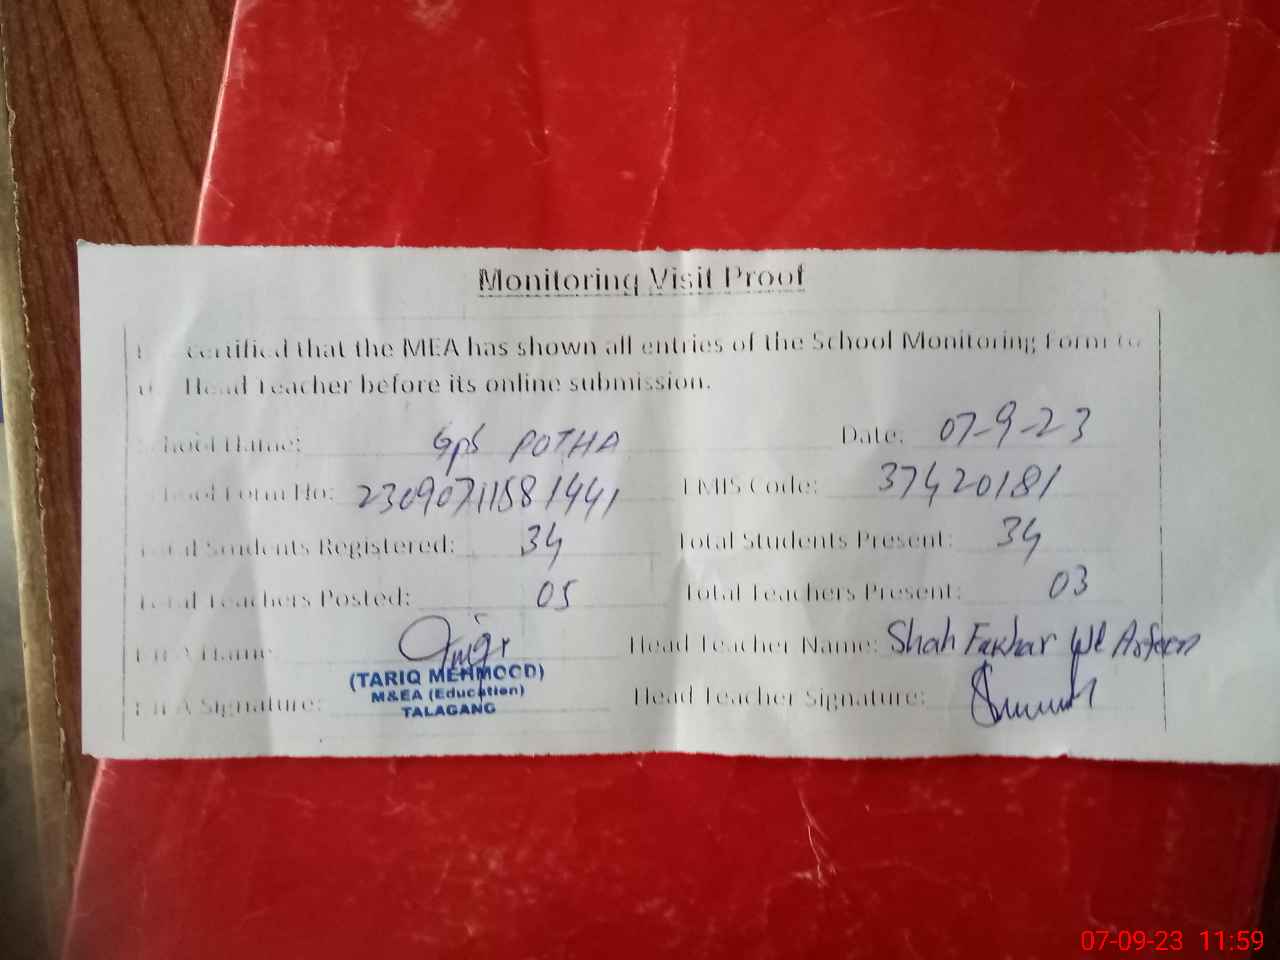 Monitoring Visit Proof
certified that the MEA has shown all entries of the School Monitoring Form to
Head Teacher before its online submission.
School Name: Gps POTHA Date: 07-9-23
School Form No: EMIS Code: 37420181
Total Students Registered: 34 Total Students Present: 34
Total Teachers Posted: 05 Total Teachers Present: 03
MEA Name Head Teacher Name: Shah Fakhar
(TARIQ MEHMOOD)
M&EA (Education)
MEA Signature: Head Teacher Signature:
TALAGANG
07-09-23 11:59